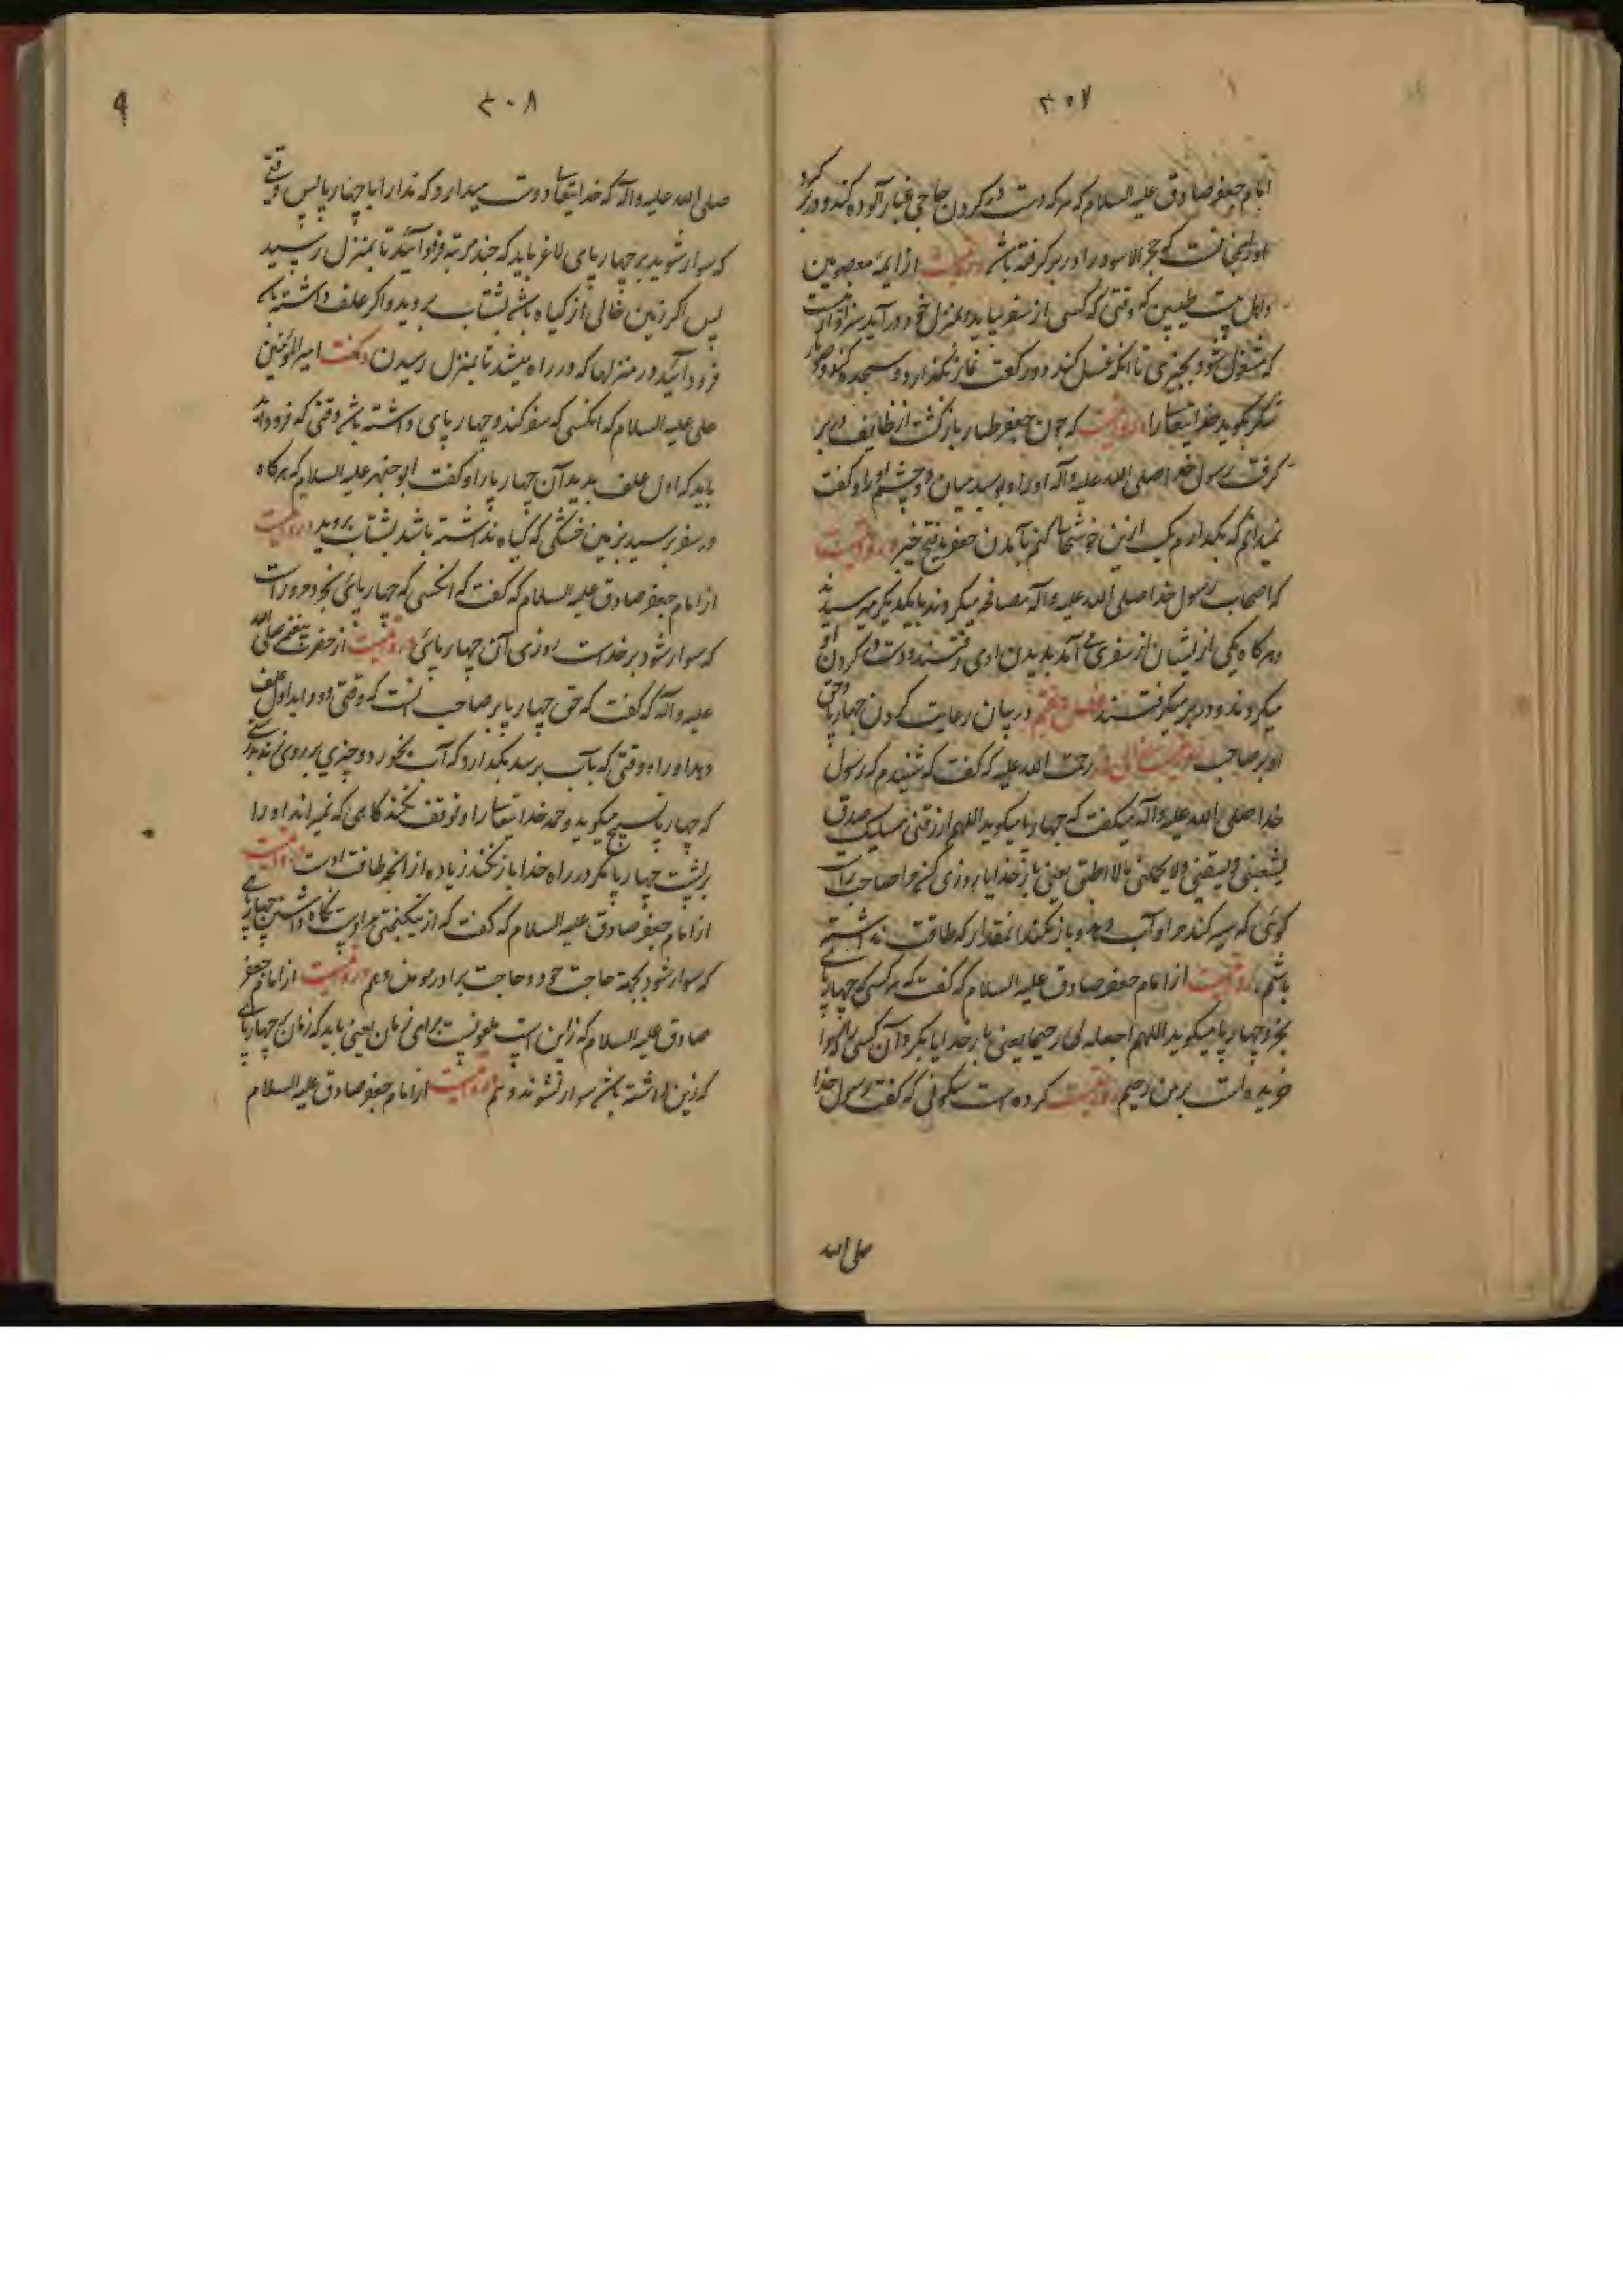 ۳۰۷
امام جعفر صادق علیه السلام که هر که دست در کردن حاجی غبار آلوده کند و در بر کیرد
او را همچنانست که حجر الاسود را در بر کرفته باشد و روایتست از ایمه معصومین
و اهل بیت طیبین که وقتی که کسی از سفر بیاید و بمنزل خود در آید سزاوار است
که مشغول نشود بچیزی تا انکه غسل کند و دو رکعت نماز بکذارد و سجده کند و صد بار
شکر بکوید خدایتعالی را و روایتست که چون جعفر طیار باز کشت از در بر
کرفت رسول خدا صلی الله علیه و آله او را و بوسید میان دو چشم او را و کفت
نمیدانم که بکدام یک ازین خوشحالی کنم بآمدن جعفر یا بفتح خیبر و روایتست
که اصحاب رسول خدا صلی الله علیه و آله مصافحه میکردند با یکدیکر میرسیدند
و هر کاه یکی از یشان از سفری می آمد بدیدن او می رفتند و دست در کردن او
میکردند و در بر میکرفتند فصل هفتم در بیان رعایت کردن چهارپا و حق
او بر صاحب روایت رحمت الله علیه که کفت که شنیدم که رسول
خدا صلی الله علیه و آله میکفت که چهارپا میکوید اللهم ارزقنی ملیک صدق
یشبعنی و یسقینی و لا یحملنی ما لا اطیق یعنی بار خدایا روزی کن مرا صاحب راست
کوئی که سیر کند مرا و آب دهد و بار نکند آنمقدار که طاقت نداشته
باشم، روایتست از امام جعفر صادق علیه السلام که کفت که هر کسی که چهارپائی
بخرد چهارپا میکوید اللهم اجعله لی رحیما یعنی بار خدایا بکردان کسی را که مرا
خریده است بر من رحیم، روایت کرده است سکونی که کفت رسول خدا
صلی الله
۳۰۸
صلی الله علیه و آله که خدایتعالی دوست میدارد که مدارا با چهارپا پس وقتی
که سوار شوید بر چهارپای لاغر باید که چند مرتبه فرود آئید تا بمنزل رسید
پس اکر زمین خالی از کیاه باشد بشتاب بروید و اکر علف داشته باشد
فرود آئید در منزلها که در راه میشد تا بمنزل رسیدن و کفت امیر المؤمنین
علی علیه السلام که انکسی که سفر کند و چهارپای داشته باشد وقتی که فرود آید
باید که اول علف بدهد آن چهارپا را و کفت ابو جعفر علیه السلام که هر کاه
در سفر برسید بزمین خشکی که کیاه نداشته باشد بشتاب بروید و روایتست
از امام جعفر صادق علیه السلام که کفت که انکسی که چهارپائی بخرد
که سوار شود بر خداست روزی آن چهارپائی و روایتست از حضرت پیغمبر صلی الله
علیه و آله که کفت که حق چهارپا بر صاحب آنست که وقتی فرود آید اول علف
دهد او را و وقتی که بآب برسد بکذارد که آب بخورد و چیزی بر روی نزند بدرستی
که چهارپا تسبیح میکوید و حمد خدایتعالی را و توقف نکند کاهی که نمیراند او را
بر پشت چهارپا مکر در راه خدا بار نکند زیاده از انچه طاقت اوست و روایتست
از امام جعفر صادق علیه السلام که کفت که از نیکبختی مرد است نکاه داشتن چهارپائی
که سوار شود بجهة حاجت خود و حاجت برادر مومن و هم روایتست از امام جعفر
صادق علیه السلام که زین است ملعونیست برای زنان یعنی نباید که زنان بر چهارپائی
که زین داشته باشد سوار نشوند و هم روایتست از امام جعفر صادق علیه السلام